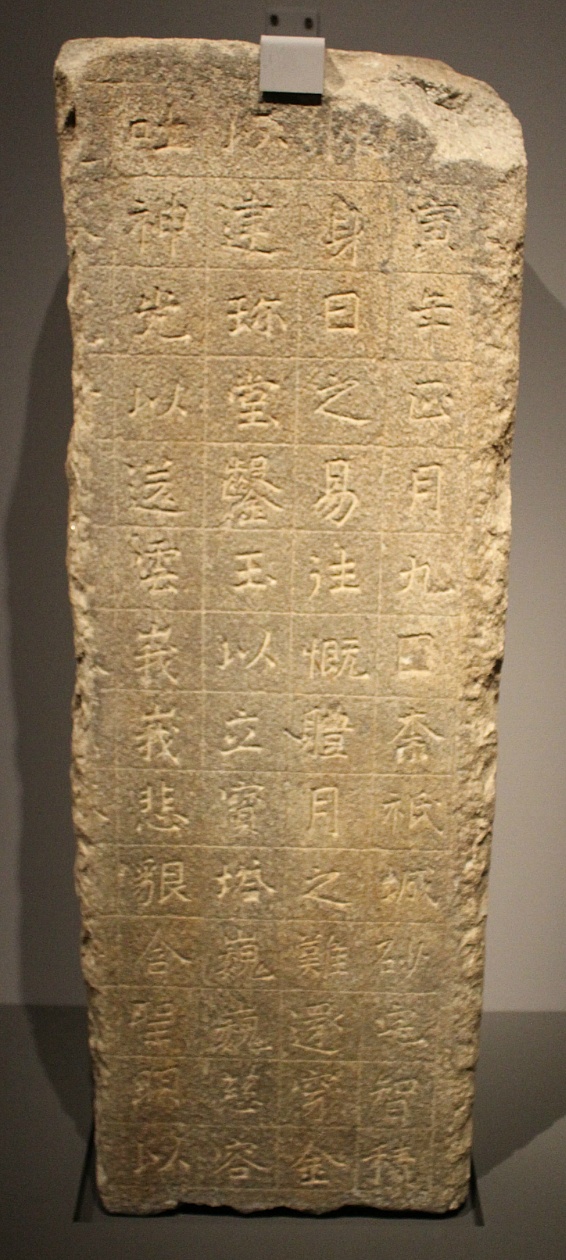 寅年正月九日奈祇城砂宅智積
慷身日之易往慨體月之難還穿金
以建珎堂鑿玉以立寶塔巍巍慈容
吐神光以送雲峩峩悲貇含聖明以